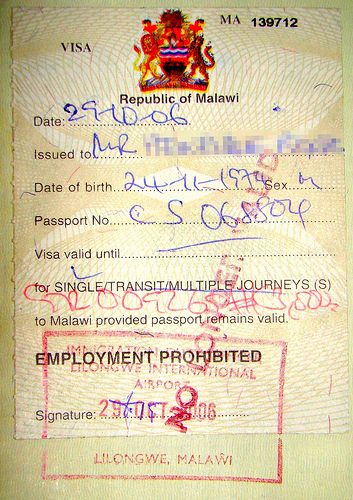 MA 139712
VISA
Republic of Malawi
Date: 29-10-06
Issued to MR
Date of birth 24-11-1974 Sex M
Passport No. CS 068804
Visa valid until
for SINGLE/TRANSIT/MULTIPLE JOURNEYS (S)
to Malawi provided passport remains valid.
IMMIGRATION
EMPLOYMENT PROHIBITED
LILONGWE INTERNATIONAL
AIRPORT
Signature: 29 OCT 2006
LILONGWE, MALAWI